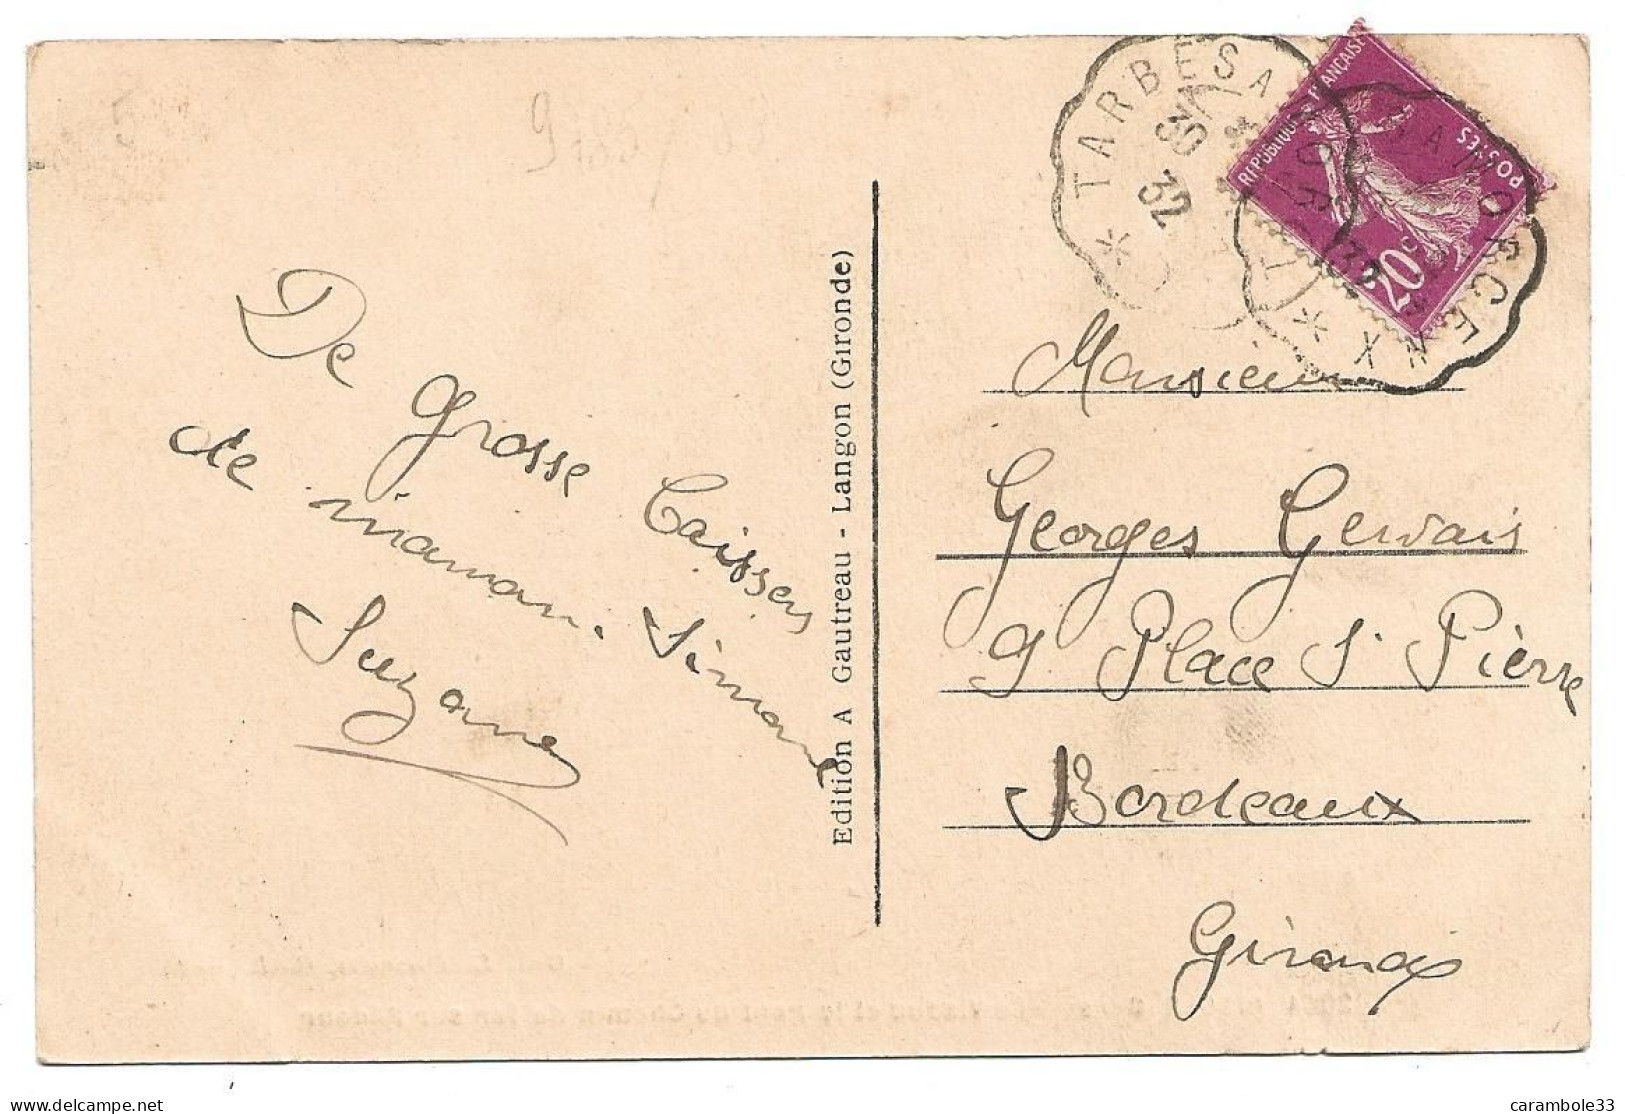 De
grosse Caisses
de maman.
Simone
Suzanne
Edition A Gautreau - Langon (Gironde)
TARBES A MORCENX
30
32
TARBES A MORCENX
RÉPUBLIQUE FRANÇAISE
POSTES
20c
Monsieur
Georges Gervais
9 Place St Pierre
Bordeaux
Gironde
carambole33